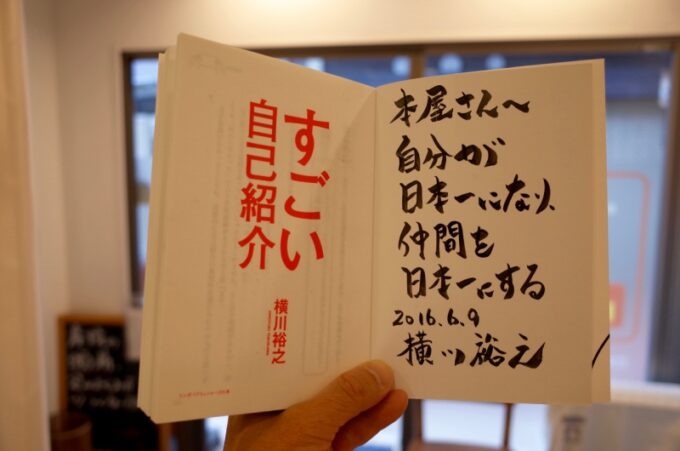 すごい
自己紹介
横川裕之
本屋さんへ
自分が
日本一になり、
仲間を
日本一にする
2016.6.9
横川裕之